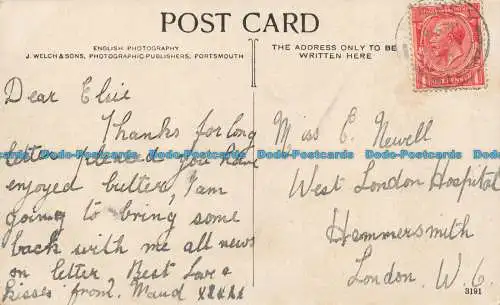 POST CARD
ENGLISH PHOTOGRAPHY
J. WELCH & SONS, PHOTOGRAPHIC PUBLISHERS, PORTSMOUTH
THE ADDRESS ONLY TO BE
WRITTEN HERE
Dear Elsie
Thanks for long
letter, pleased you have
enjoyed butter, I am
going to bring some
back with me all news
on letter. Best Love &
kisses from Maud xxxxx
Miss E. Newell
West London Hospital
Hammersmith
London. W. 6
3191
Dodo-Postcards Dodo-Postcards Dodo-Postcards Dodo-Postcards Dodo-Postcards